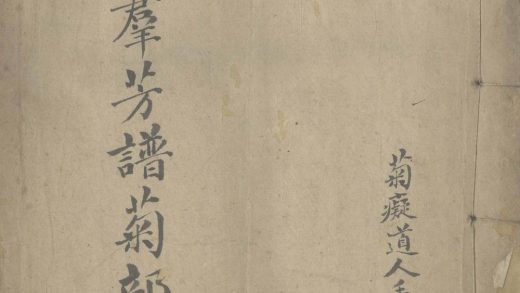 菊癡道人手
羣芳譜菊部